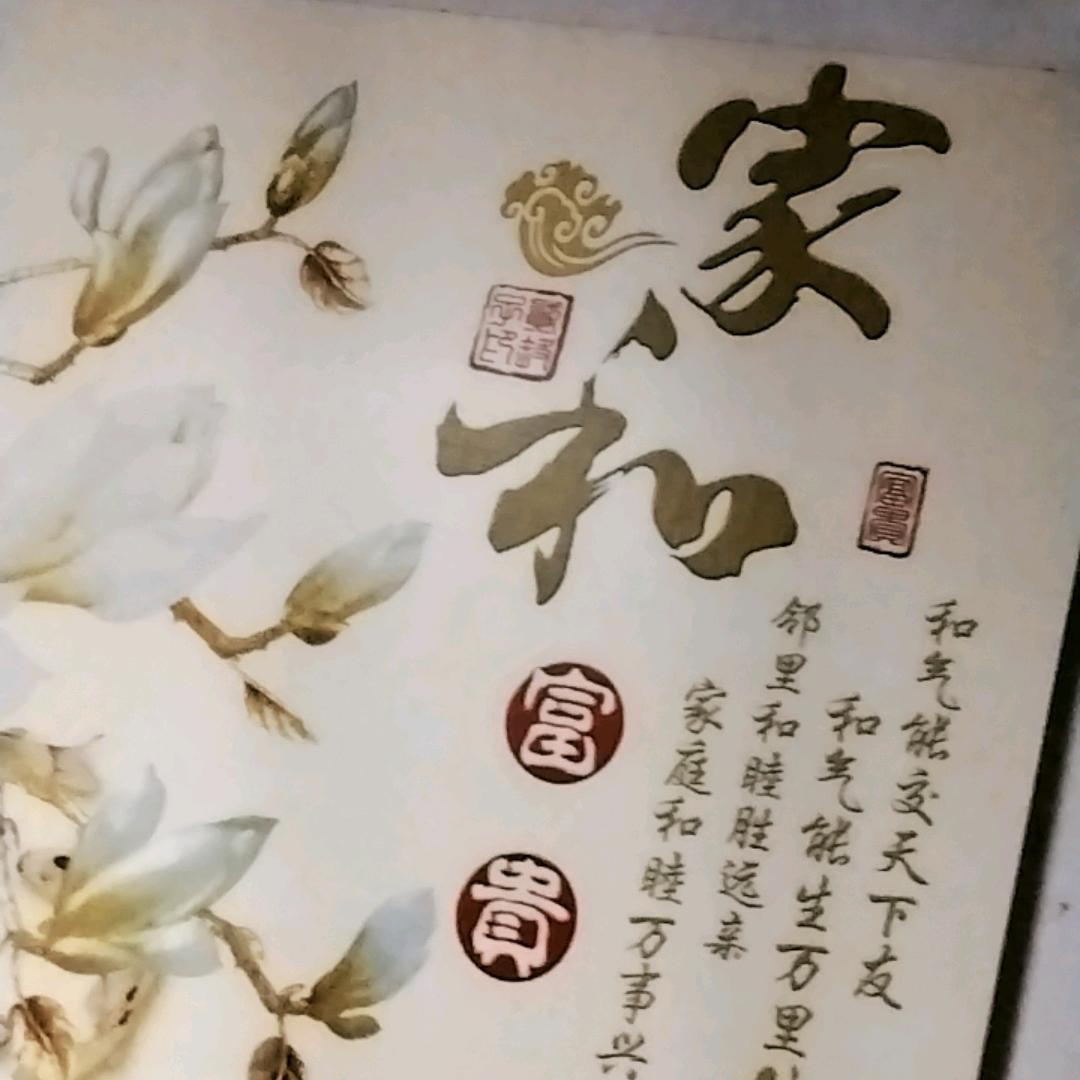 家和
富贵
和气能交天下友
和气能生万里
邻里和睦胜远亲
家庭和睦万事兴
富
貴